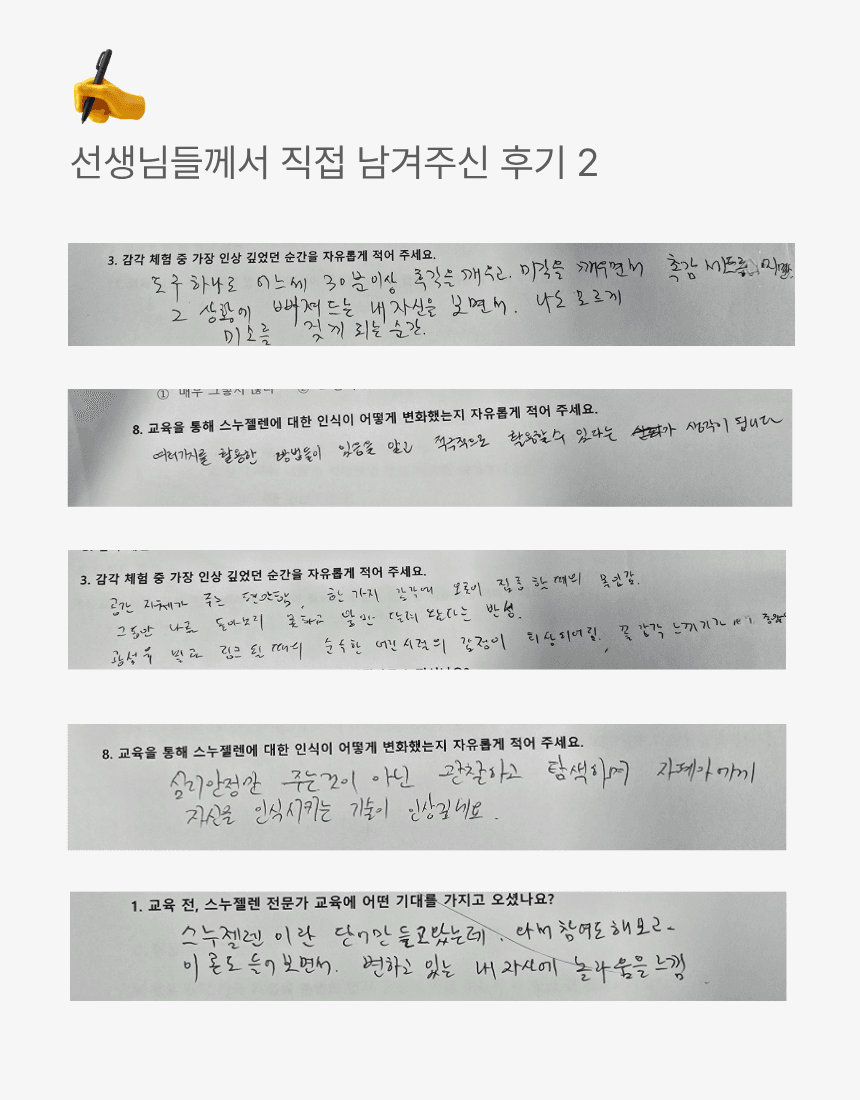 선생님들께서 직접 남겨주신 후기 2
3. 감각 체험 중 가장 인상 깊었던 순간을 자유롭게 적어 주세요.
도구 하나로 어느새 30분이상 촉각을 깨우고. 미각을 깨우면서 촉감
그 상황에 빠져드는 내 자신을 보면서. 나도 모르게
미소를 짓게 되는 순간.
8. 교육을 통해 스누젤렌에 대한 인식이 어떻게 변화했는지 자유롭게 적어 주세요.
여러가지를 활용한 방법들이 있음을 알고 적극적으로 활용할수 있다는 생각이 됩니다
3. 감각 체험 중 가장 인상 깊었던 순간을 자유롭게 적어 주세요.
공간 자체가 주는 편안함, 한 가지 감각에 오로이 집중했때의 몰입감.
그동안 나를 돌아보지 못하고 앞만 달려왔다는 반성.
광섬유 빛과 링크될때의 순수한 어린시절의 감정이 회상되어짐.
8. 교육을 통해 스누젤렌에 대한 인식이 어떻게 변화했는지 자유롭게 적어 주세요.
심리안정만 주는것이 아닌 관찰하고 탐색하며 자폐아에게
자신을 인식시키는 기술이 인상깊네요.
1. 교육 전, 스누젤렌 전문가 교육에 어떤 기대를 가지고 오셨나요?
스누젤렌 이란 단어만 들고왔는데. 와서 참여도해보고
이론도 들어보면서. 변하고 있는 내 자신에 놀라움을 느낌